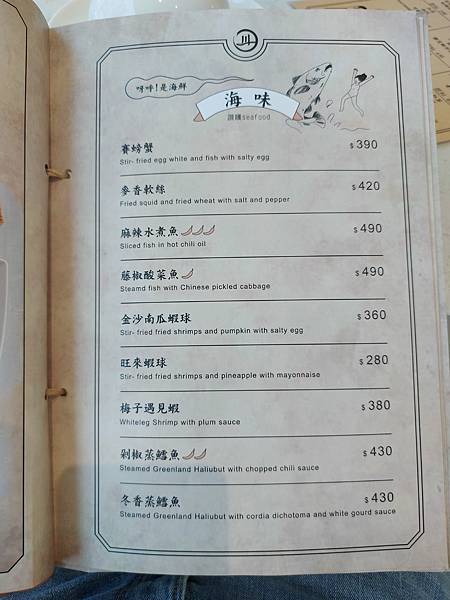 川
哼呼!是海鮮
海味
讚讚seafood
賽螃蟹 $390
Stir- fried egg white and fish with salty egg
麥香軟絲 $420
Fried squid and fried wheat with salt and pepper
麻辣水煮魚 $490
Sliced fish in hot chili oil
藤椒酸菜魚 $490
Steamd fish with Chinese pickled cabbage
金沙南瓜蝦球 $360
Stir- fried fried shrimps and pumpkin with salty egg
旺來蝦球 $280
Stir- fried fried shrimps and pineapple with mayonnaise
梅子遇見蝦 $380
Whiteleg Shrimp with plum sauce
剁椒蒸鱈魚 $430
Steamed Greenland Haliubut with chopped chili sauce
冬香蒸鱈魚 $430
Steamed Greenland Haliubut with cordia dichotoma and white gourd sauce